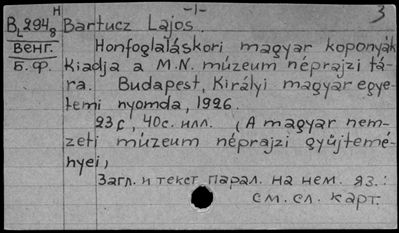 H -1- 3
BL 294/8 Bartucz Lajos.
Венг. Honfogláláskori magyar koponyák
Б.Ф. Kiadja a M.N. múzeum néprajzi tá-
ra. Budapest, Királyi magyar egye-
temi nyomda, 1926.
23с, 40с. илл. (A magyar nem-
zeti múzeum néprajzi gyűjtemé-
nyei,
Загл. и текст парал. на нем. яз.:
см. сл. карт.